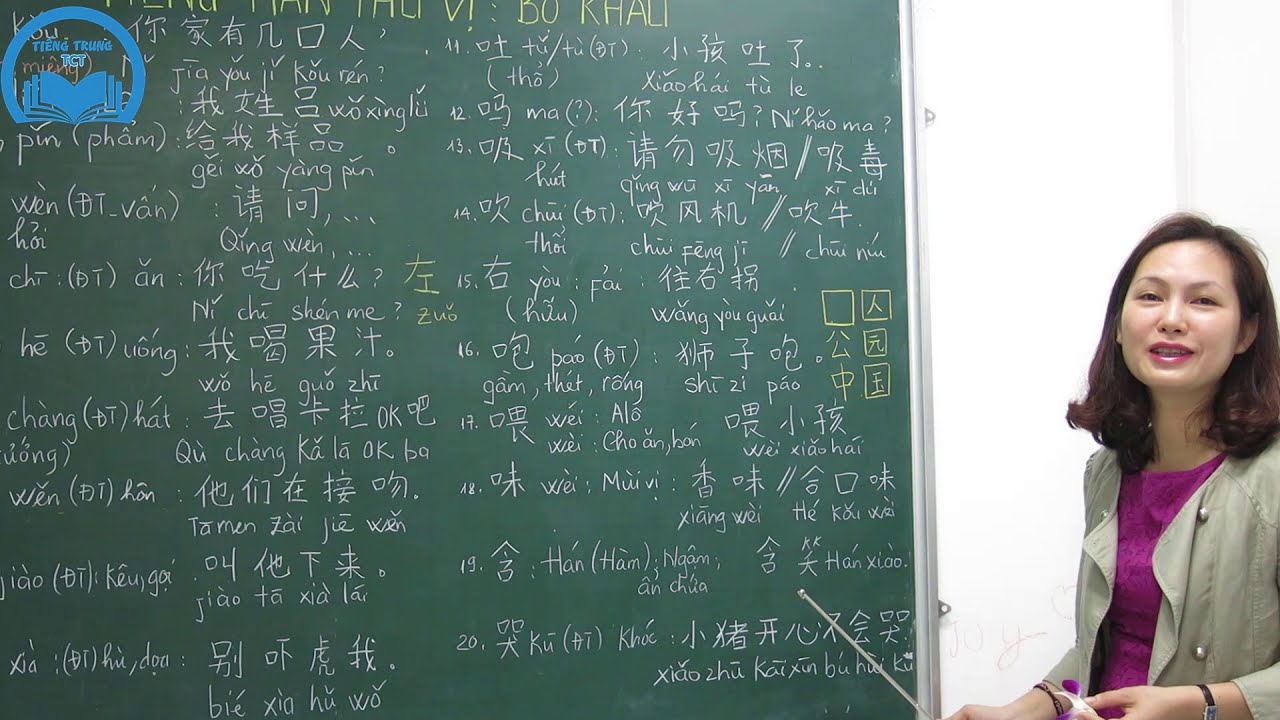 TIẾNG HÁN THÚ VỊ : BỘ KHẨU
TIẾNG TRUNG
TCT
kǒu 你家有几口人?
miệng) Nǐ jiā yǒu jǐ kǒu rén?
: 我姓吕 wǒ xìng lǚ
pǐn (phẩm) : 给我样品。
gěi wǒ yàng pǐn
wèn (ĐT_vấn) : 请问, ...
hỏi Qǐng wèn, ...
chī : (ĐT) ăn : 你吃什么? 左
Nǐ chī shén me? zuǒ
hē (ĐT) uống : 我喝果汁。
wǒ hē guǒ zhī
chàng (ĐT) hát : 去唱卡拉OK吧
xướng) Qù chàng Kǎ lā OK ba
wěn (ĐT) hôn : 他们在接吻.
Tā men zài jiē wěn
jiào (ĐT) : Kêu, gọi 叫他下来。
jiào tā xià lái
xià : (ĐT) hù, dọa : 别吓唬我。
bié xià hǔ wǒ
11. 吐 tǔ/tù (ĐT) : 小孩吐了..
(thổ) Xiǎo hái tù le
12. 吗 ma (?) : 你好吗? Nǐ hǎo ma?
13. 吸 xī (ĐT) : 请勿吸烟 // 吸毒
hút qǐng wū xī yān xī dú
14. 吹 chūi (ĐT) : 吹风机 // 吹牛.
thổi chūi fēng jī // chūi níu
15. 右 yòu : Fải : 往右拐.
(hữu) wǎng yòu guǎi
囗 囚
公 园
中 国
16. 咆 páo (ĐT) : 狮子咆。
gầm, thét, rống shī zi páo
17. 喂 wéi : Alô 喂小孩
wèi : Cho ăn, bón wèi xiǎo hái
18. 味 wèi : Mùi vị : 香味 // 合口味
xiāng wèi Hé kǒu wèi
19. 含 : Hán (Hàm) : Ngậm, 含笑 Hán xiào.
ẩn chứa
20. 哭 Kū (ĐT) khóc : 小猪开心不会哭.
xiǎo zhū Kāi xīn bú hùi kū